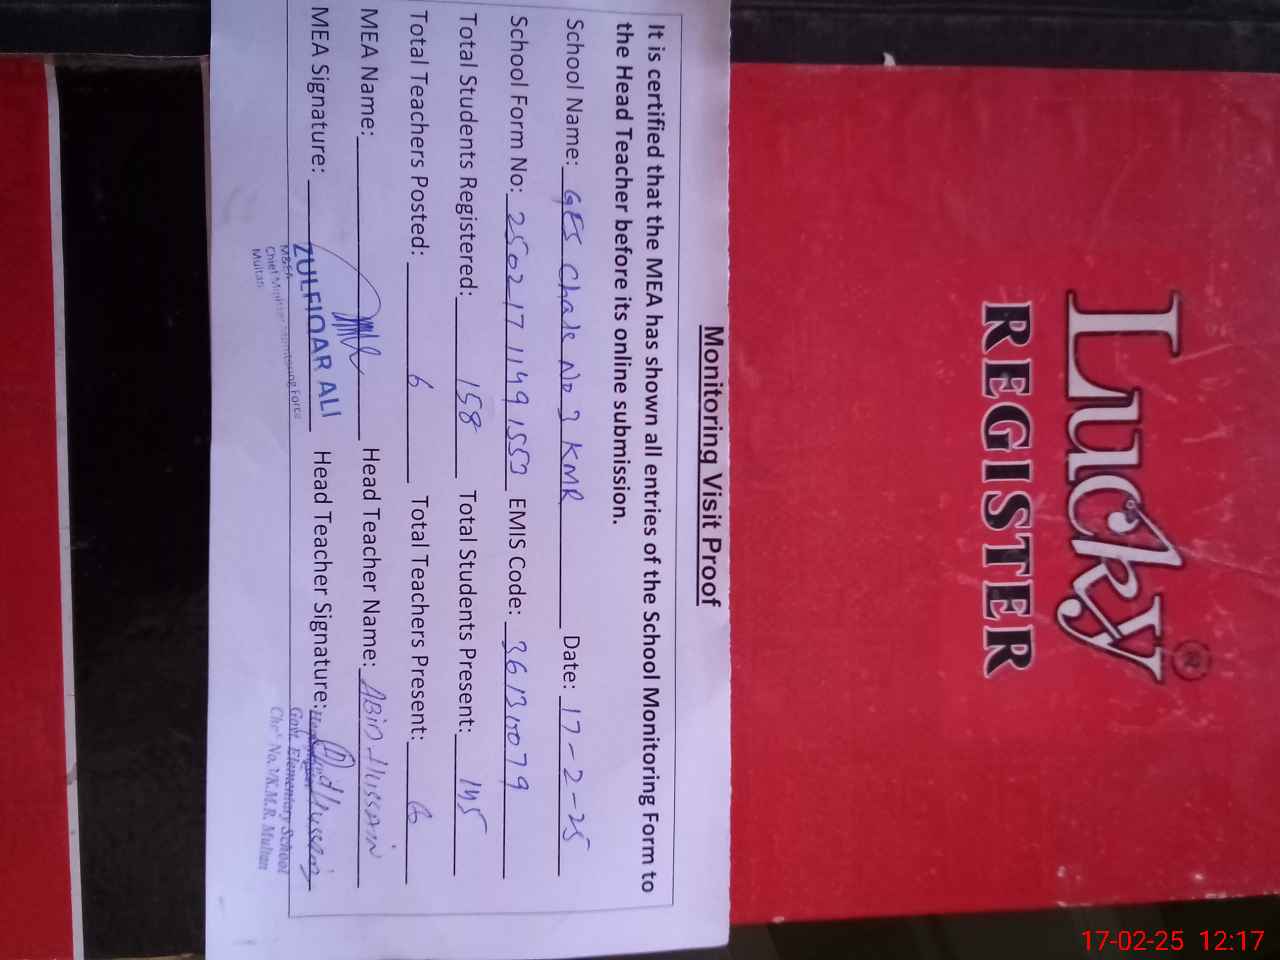 Monitoring Visit Proof
It is certified that the MEA has shown all entries of the School Monitoring Form to
the Head Teacher before its online submission.
School Name: GES Chak No 3 KMR Date: 17-2-25
School Form No: EMIS Code:
Total Students Registered: 158 Total Students Present: 145
Total Teachers Posted: 6 Total Teachers Present: 6
MEA Name: Head Teacher Name: ABID HUSSAIN
MEA Signature: Head Teacher Signature:
ZULFIQAR ALI
M&EA
Chief Minister Monitoring Force
Multan
Govt. Elementary School
K.M.R. Multan
Lucky®
REGISTER
17-02-25 12:17